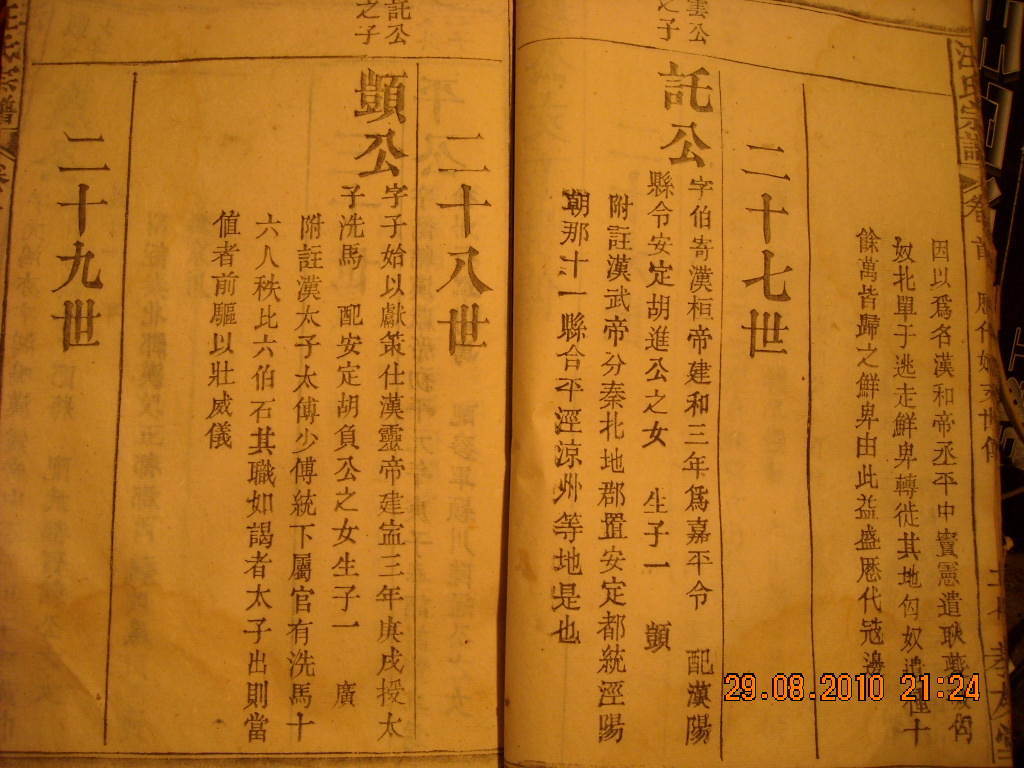 汪氏宗譜 卷首
因以爲名漢和帝丞平中竇憲遣耿夔破匈
奴北單于逃走鮮卑轉徙其地匈奴遺種十
餘萬皆歸之鮮卑由此益盛厯代冦邊
二十七世
雲公
之子
託公字伯寄漢桓帝建和三年爲嘉平令 配漢陽
縣令安定胡進公之女 生子一 顗
附註漢武帝分秦北地郡置安定都統涇陽
朝那十一縣合平涇涼州等地是也
二十八世
託公
之子
顗公字子始以獻策仕漢靈帝建寍三年庚戌授太
子洗馬 配安定胡負公之女生子一 廣
附註漢太子太傅少傅統下屬官有洗馬十
六人秩比六伯石其職如謁者太子出則當
值者前驅以壯威儀
二十九世
汪氏宗譜
29.08.2010 21:24